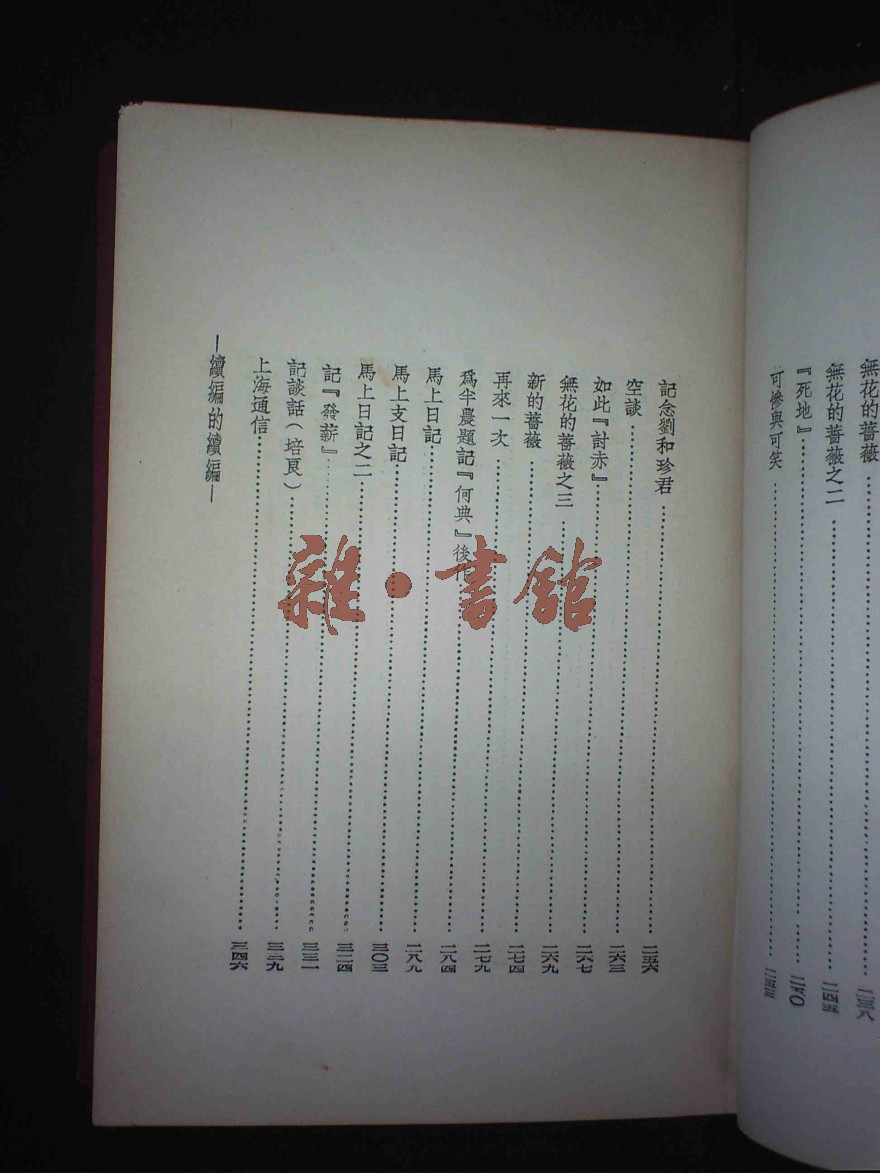 無花的薔薇……二三八
無花的薔薇之二……二四五
『死地』……二五〇
可慘與可笑……二五三
記念劉和珍君……二五六
空談……二六三
如此『討赤』……二六七
無花的薔薇之三……二六九
新的薔薇……二七四
再來一次……二七九
爲半農題記『何典』後作……二八四
馬上日記……二八九
馬上支日記……三〇三
馬上日記之二……三二四
記『發薪』……三三一
記談話(培良)……三三九
上海通信……三四六
—續編的續編—
雜·書館